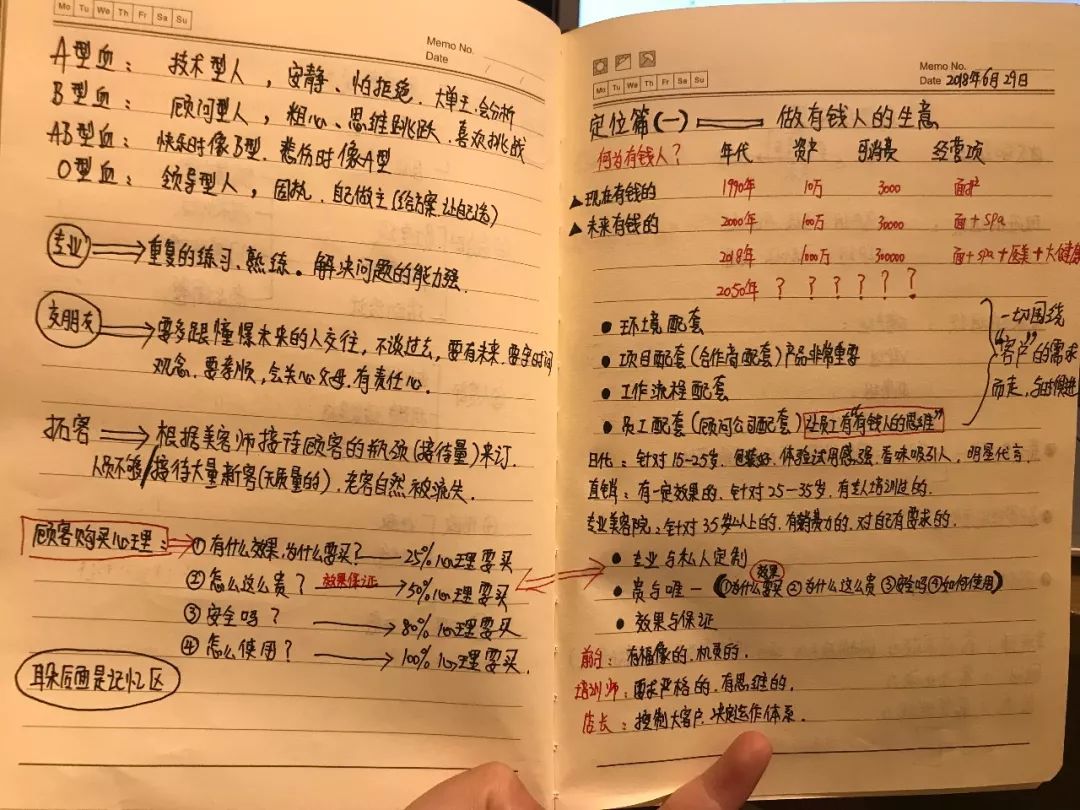 Mo Tu We Th Fr Sa Su
Memo No.
Date / /
A型血： 技术型人，安静、怕拒绝、大单王、会分析
B型血： 顾问型人，粗心、思维跳跃、喜欢挑战
AB型血： 快乐时像B型、悲伤时像A型
O型血： 领导型人，固执、自己做主(给方案让自己选)
专业 ⟹ 重复的练习、熟练。解决问题的能力强.
交朋友 ⟹ 要多跟憧憬未来的人交往，不谈过去，要有未来、要守时间
观念、要孝顺，会关心父母、有责任心。
拓客 ⟹ 根据美容师接待顾客的瓶颈(接待量)来订.
人员不够/接待大量新客(无质量的)、老客自然被流失.
顾客购买心理： ① 有什么效果,为什么要买? 25%心理要买
② 怎么这么贵? 效果保证 → 50%心理要买
③ 安全吗? → 80%心理要买
④ 怎么使用? → 100%心理要买.
耳朵后面是记忆区
Mo Tu We Th Fr Sa Su
Memo No.
Date 2018年6月29日
定位篇(一) —— 做有钱人的生意
何为有钱人? 年代 资产 可消费 经营项
▲现在有钱的 1990年 10万 3000 面护
▲未来有钱的 2000年 100万 30000 面+spa
2018年 1000万 300000 面+spa+医美+大健康
2050年 ? ? ? ? ? ?
● 环境配套
● 项目配套(合作商配套)产品非常重要
● 工作流程配套
● 员工配套(顾问公司配套) 让员工有"有钱人的思维"
一切围绕
"客户"的需求
而走，与时俱进
日化：针对15-25岁、包装好、体验试用感强、香味吸引人、明星代言.
直销：有一定效果的、针对25-35岁、有专人培训过的.
专业美容院：针对35岁以上的、有消费力的、对自己有要求的.
● 专业与私人定制
● 贵与唯一 (①为什么要买 效果 ②为什么这么贵 ③安全吗 ④如何使用)
● 效果与保证
前台：有福像的、机灵的.
培训师：要求严格的、有思维的.
店长：控制大客户、决定运作体系.